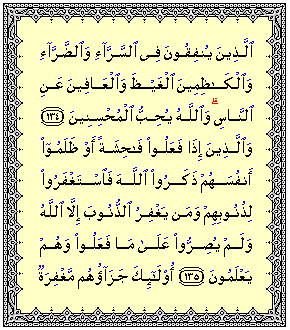 ٱلَّذِينَ يُنفِقُونَ فِى ٱلسَّرَّآءِ وَٱلضَّرَّآءِ
وَٱلْكَـٰظِمِينَ ٱلْغَيْظَ وَٱلْعَافِينَ عَنِ
ٱلنَّاسِ ۗ وَٱللَّهُ يُحِبُّ ٱلْمُحْسِنِينَ ﴿١٣٤﴾
وَٱلَّذِينَ إِذَا فَعَلُوا۟ فَـٰحِشَةً أَوْ ظَلَمُوٓا۟
أَنفُسَهُمْ ذَكَرُوا۟ ٱللَّهَ فَٱسْتَغْفَرُوا۟
لِذُنُوبِهِمْ وَمَن يَغْفِرُ ٱلذُّنُوبَ إِلَّا ٱللَّهُ
وَلَمْ يُصِرُّوا۟ عَلَىٰ مَا فَعَلُوا۟ وَهُمْ
يَعْلَمُونَ ﴿١٣٥﴾ أُو۟لَـٰٓئِكَ جَزَآؤُهُم مَّغْفِرَةٌ